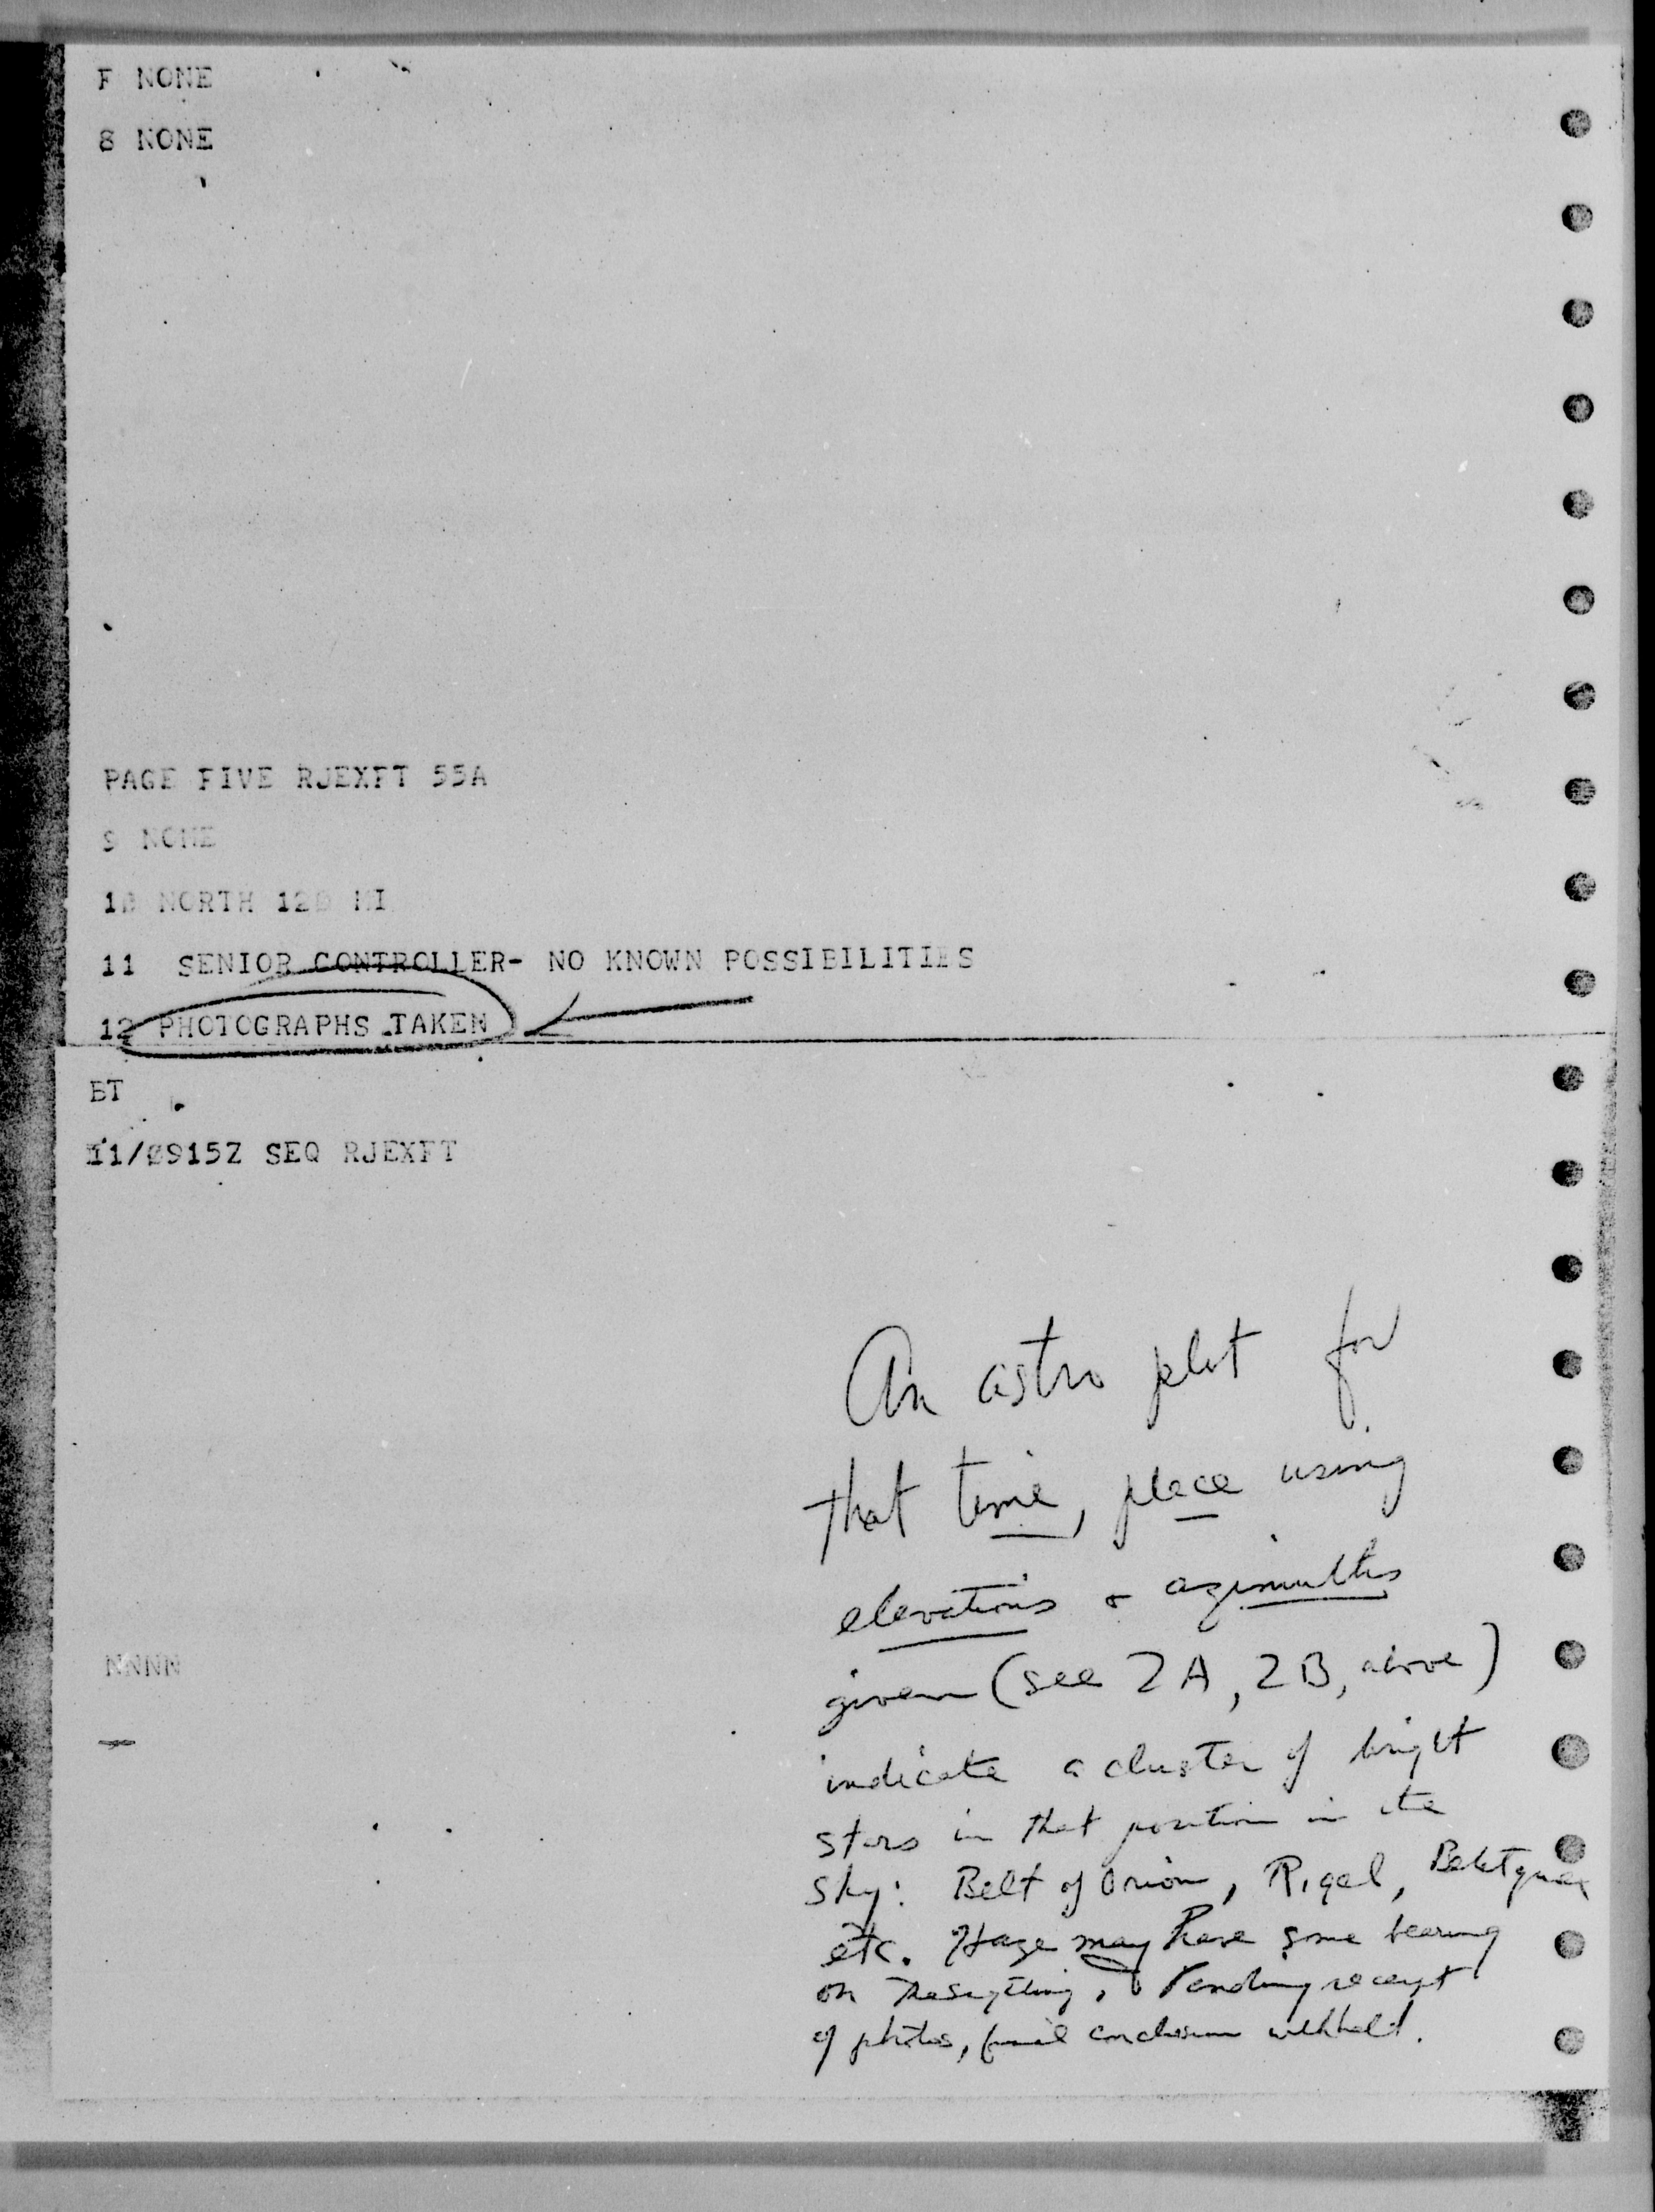 F NONE
8 NONE
PAGE FIVE RJEXFT 55A
9 NONE
10 NORTH 120 MI
11 SENIOR CONTROLLER- NO KNOWN POSSIBILITIES
12 PHOTOGRAPHS TAKEN
BT
11/0915Z SEQ RJEXFT
An astro plot for
that time, place using
elevations & azimuths
given (see 2A, 2B, above)
indicate a cluster of bright
stars in that position in the
sky: Belt of Orion, Rigel,
etc. Haze may have some bearing
on the sighting. Pending receipt
of photos, final conclusion withheld.
NNNN